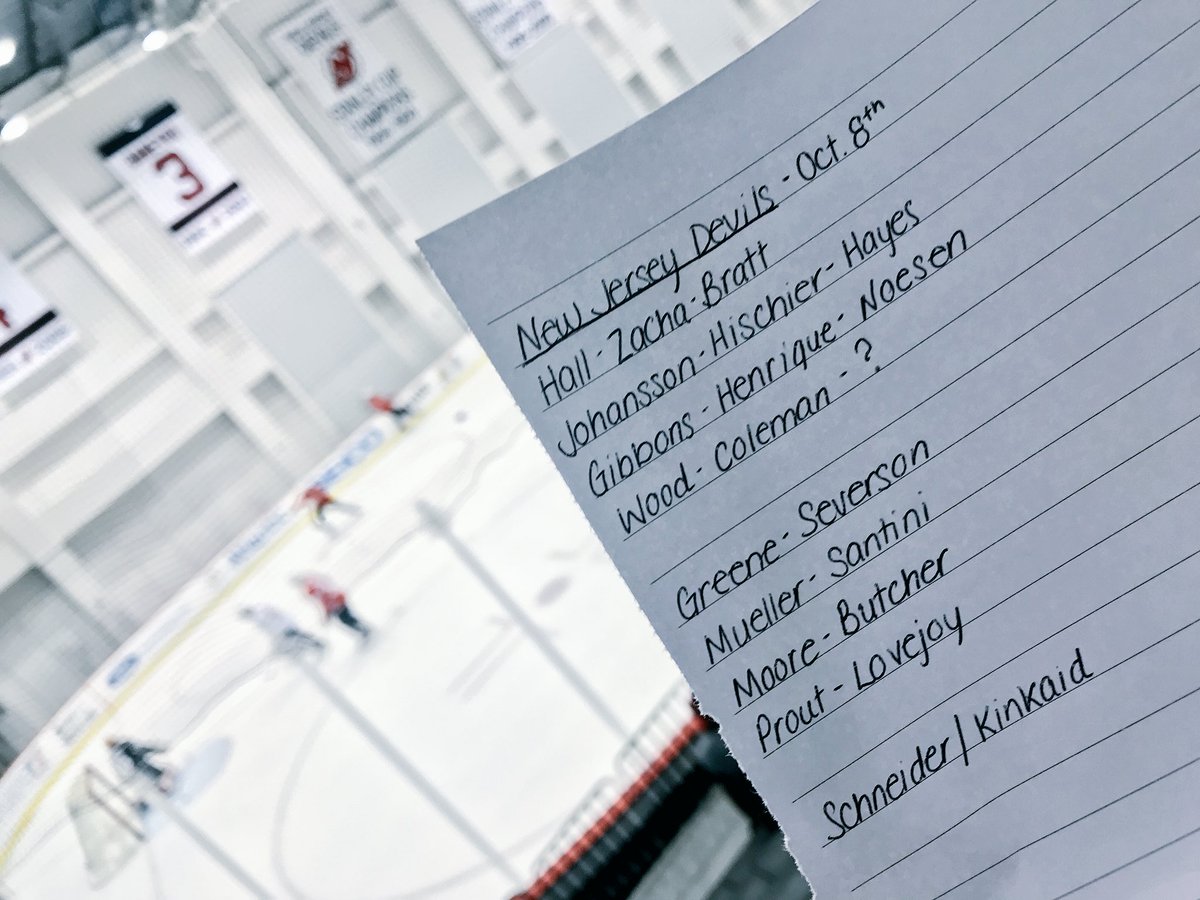 3
STANLEY CUP
CHAMPIONS
New Jersey Devils - Oct. 8th
Hall - Zacha - Bratt
Johansson - Hischier - Hayes
Gibbons - Henrique - Noesen
Wood - Coleman - ?
Greene - Severson
Mueller - Santini
Moore - Butcher
Prout - Lovejoy
Schneider / Kinkaid